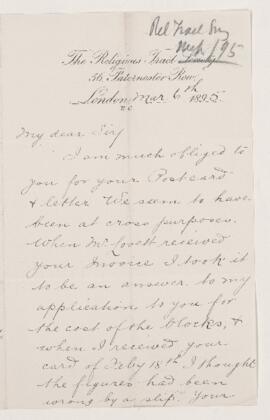 Rel Tract Soc
Mch/95
The Religious Tract Society
56, Paternoster Row,
London, Mar 6th 1895
My dear Sir,
I am much obliged to
you for your Postcard
& letter We seem to have
been at cross purposes.
When Mr received
your Invoice I took it
to be an answer to my
application to you for
the cost of the blocks, &
when I received your
card of Feby 18th I thought
the figures had been
wrong by a slip. Your